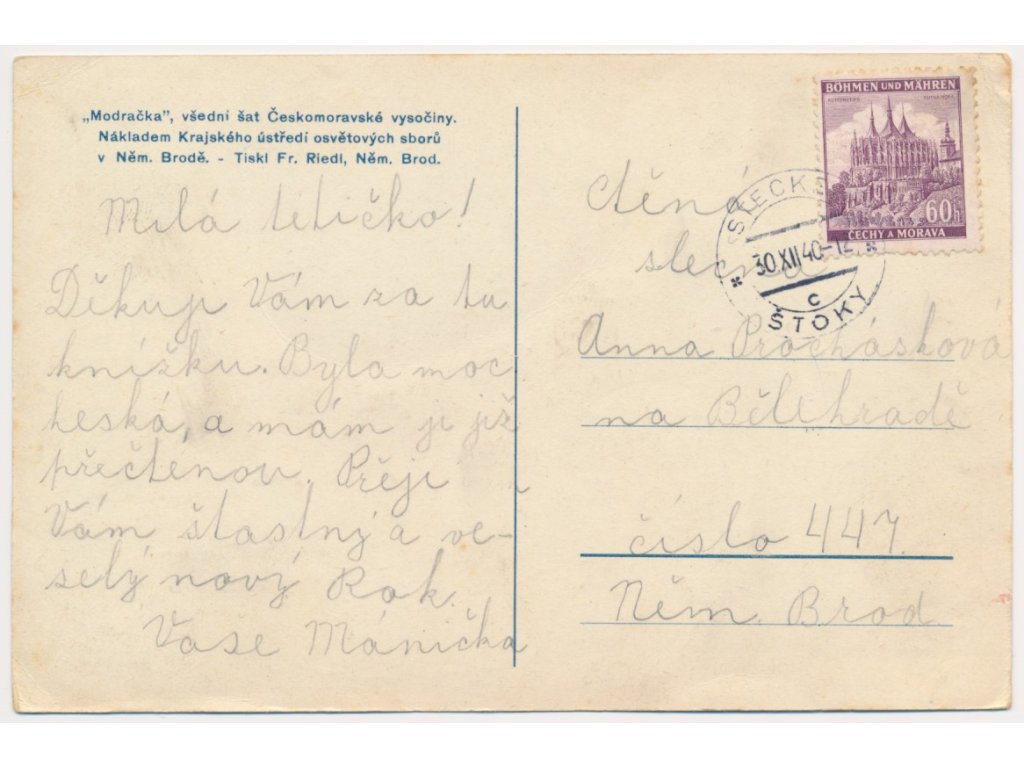 „Modračka", všední šat Českomoravské vysočiny.
Nákladem Krajského ústředí osvětových sborů
v Něm. Brodě. - Tiskl Fr. Riedl, Něm. Brod.
Milá tetičko!
Děkuji Vám za tu
knížku. Byla moc
heská, a mám ji již
přečtenou. Přeji
Vám štastný a ve-
selý nový Rok.
Vaše Mánička
BÖHMEN UND MÄHREN
60h
ČECHY A MORAVA
STECKE
30.XII.40-12
c
ŠTOKY
Ctěná
slečna
Anna Procházková
na Bělehradě
číslo 447.
Něm. Brod